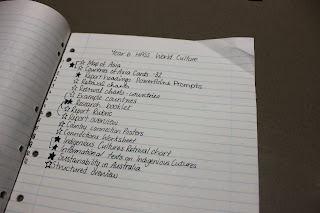 Year 6 HASS World Culture
Map of Asia
Countries of Asia Cards 32
Report headings PowerPoint Prompts
Retrieval charts
Retrieval charts - countries
Example countries
Research booklet
Report Rubric
Report overview
Country connection Posters
Connections Worksheet
Indigenous Cultures Retrieval chart
Information texts on Indigenous Cultures
Sustainability in Australia
Structured Overview